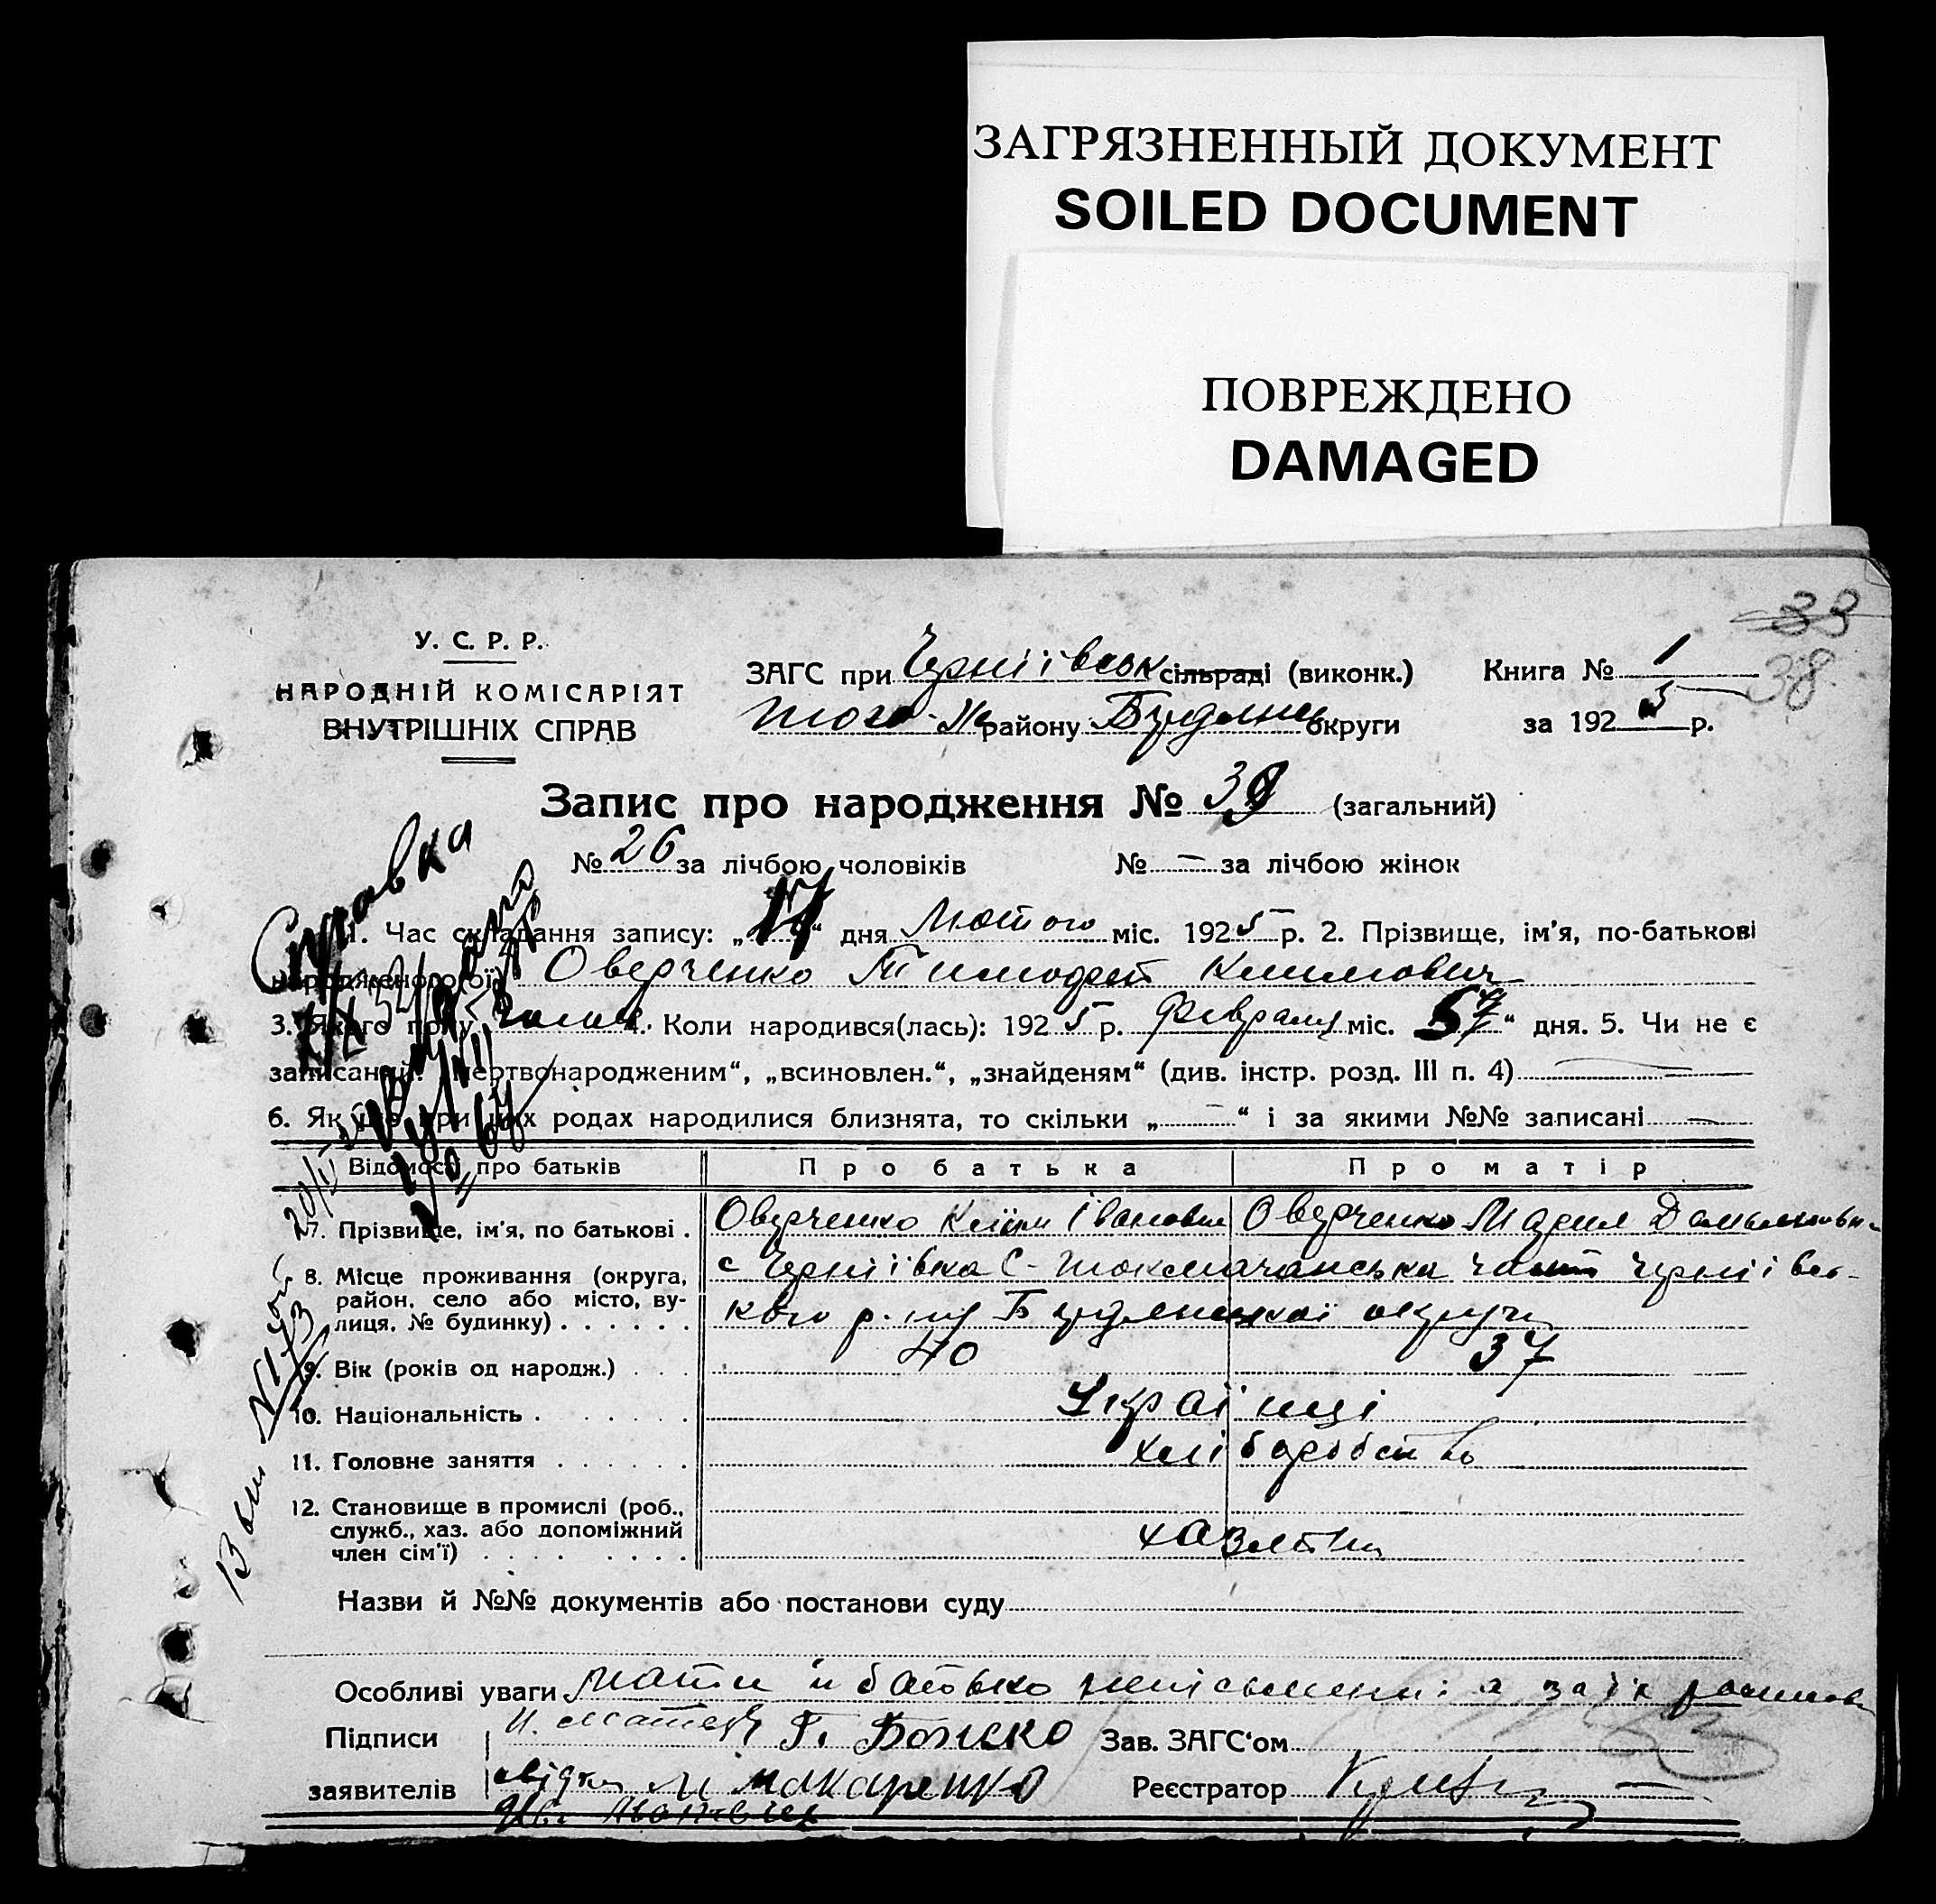 ЗАГРЯЗНЕННЫЙ ДОКУМЕНТ
SOILED DOCUMENT
ПОВРЕЖДЕНО
DAMAGED
33
38
У. С. Р. Р.
НАРОДНІЙ КОМІСАРІЯТ
ВНУТРІШНІХ СПРАВ
ЗАГС при Черніївськ сільраді (виконк.)
Книга № 1
того-ж району Бердянськ округи
за 1925 р.
Запис про народження № 39 (загальний)
№ 26 за лічбою чоловіків № — за лічбою жінок
Справка
1. Час складання запису: „17“ дня Лютого міс. 1925 р. 2. Прізвище, ім'я, по-батькові
народженого(ої) Оверченко Тимофей Климович
3. Якого полу 4. Коли народився(лась): 1925 р. Февраля міс. “ дня. 5. Чи не є
записаний: „мертвонародженим“, „всиновлен.“, „знайденям“ (див. інстр. розд. III п. 4) —
6. Як що при цих родах народилися близнята, то скільки „ — “ і за якими №№ записані —
Відомості про батьків Про батька Про матір
7. Прізвище, ім'я, по батькові . Оверченко Клим Іванович Оверченко Мария
8. Місце проживання (округа, район, село або місто, вулиця, № будинку) . . . . . . с Черніївка С-Токмачанська Черніївсь-
кого р-ну Бердянської округи
9. Вік (років од народж.) . . . 40 37
10. Національність . . . . . . . Українці
11. Головне заняття . . . . . . хліборобство
12. Становище в промислі (роб., служб., хаз. або допоміжний член сім'ї) . . . . . . . . хазяїни
Назви й №№ документів або постанови суду
Особливі уваги мати и батько неписьменні а за їх
Підписи П. Божко Зав. ЗАГС'ом
заявителів свідки М Макаренко Реєстратор